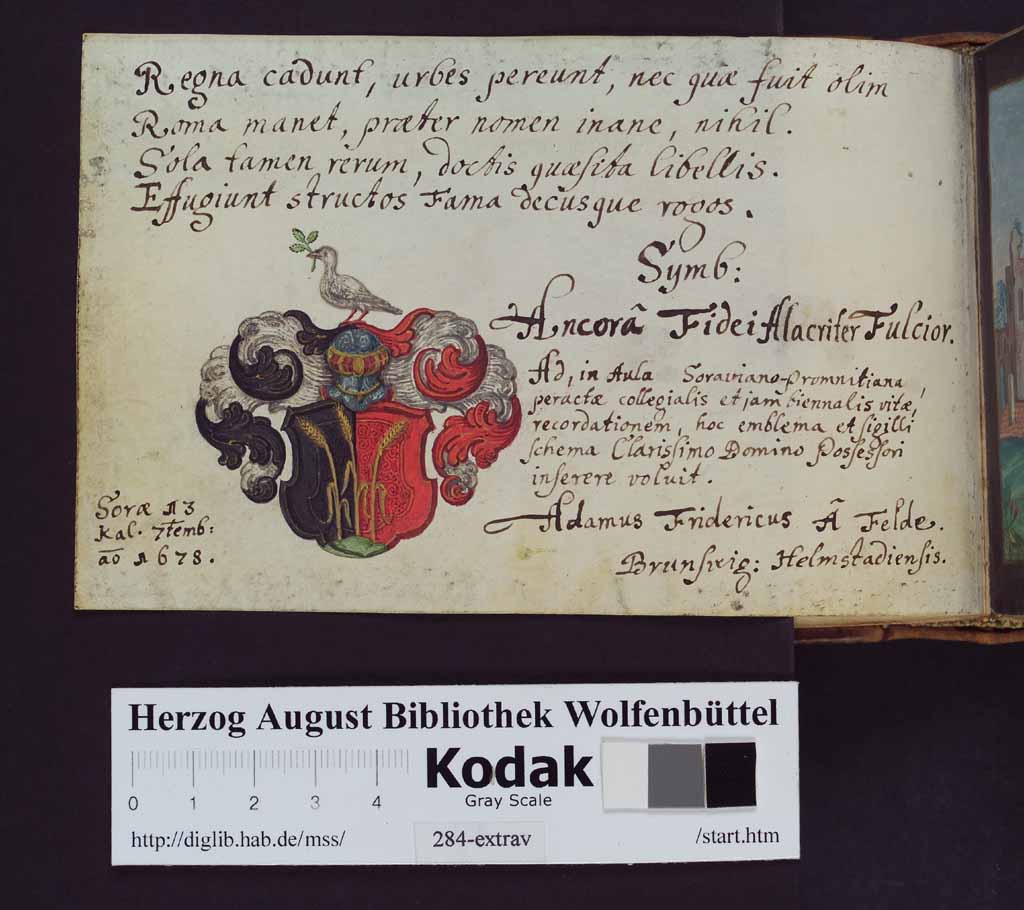 Regna cadunt, urbes pereunt, nec quæ fuit olim
Roma manet, præter nomen inane, nihil.
Sola tamen rerum, doctis quæsita libellis.
Effugiunt structos Fama decusque rogos.
Symb:
Ancorâ Fidei Alacriter Fulcior.
Ad, in Aula Soraviano-Promnitiana,
peractæ collegialis et jam biennalis vitæ,
recordationem, hoc emblema et sigilli
schema Clarissimo Domino Possessori
inserere voluit.
Adamus Fridericus Â Felde.
Brunsvig: Helmstadiensis.
Soræ 13
Kal. 7temb:
aō 1678.
Herzog August Bibliothek Wolfenbüttel
0 1 2 3 4
Kodak
Gray Scale
http://diglib.hab.de/mss/ 284-extrav /start.htm